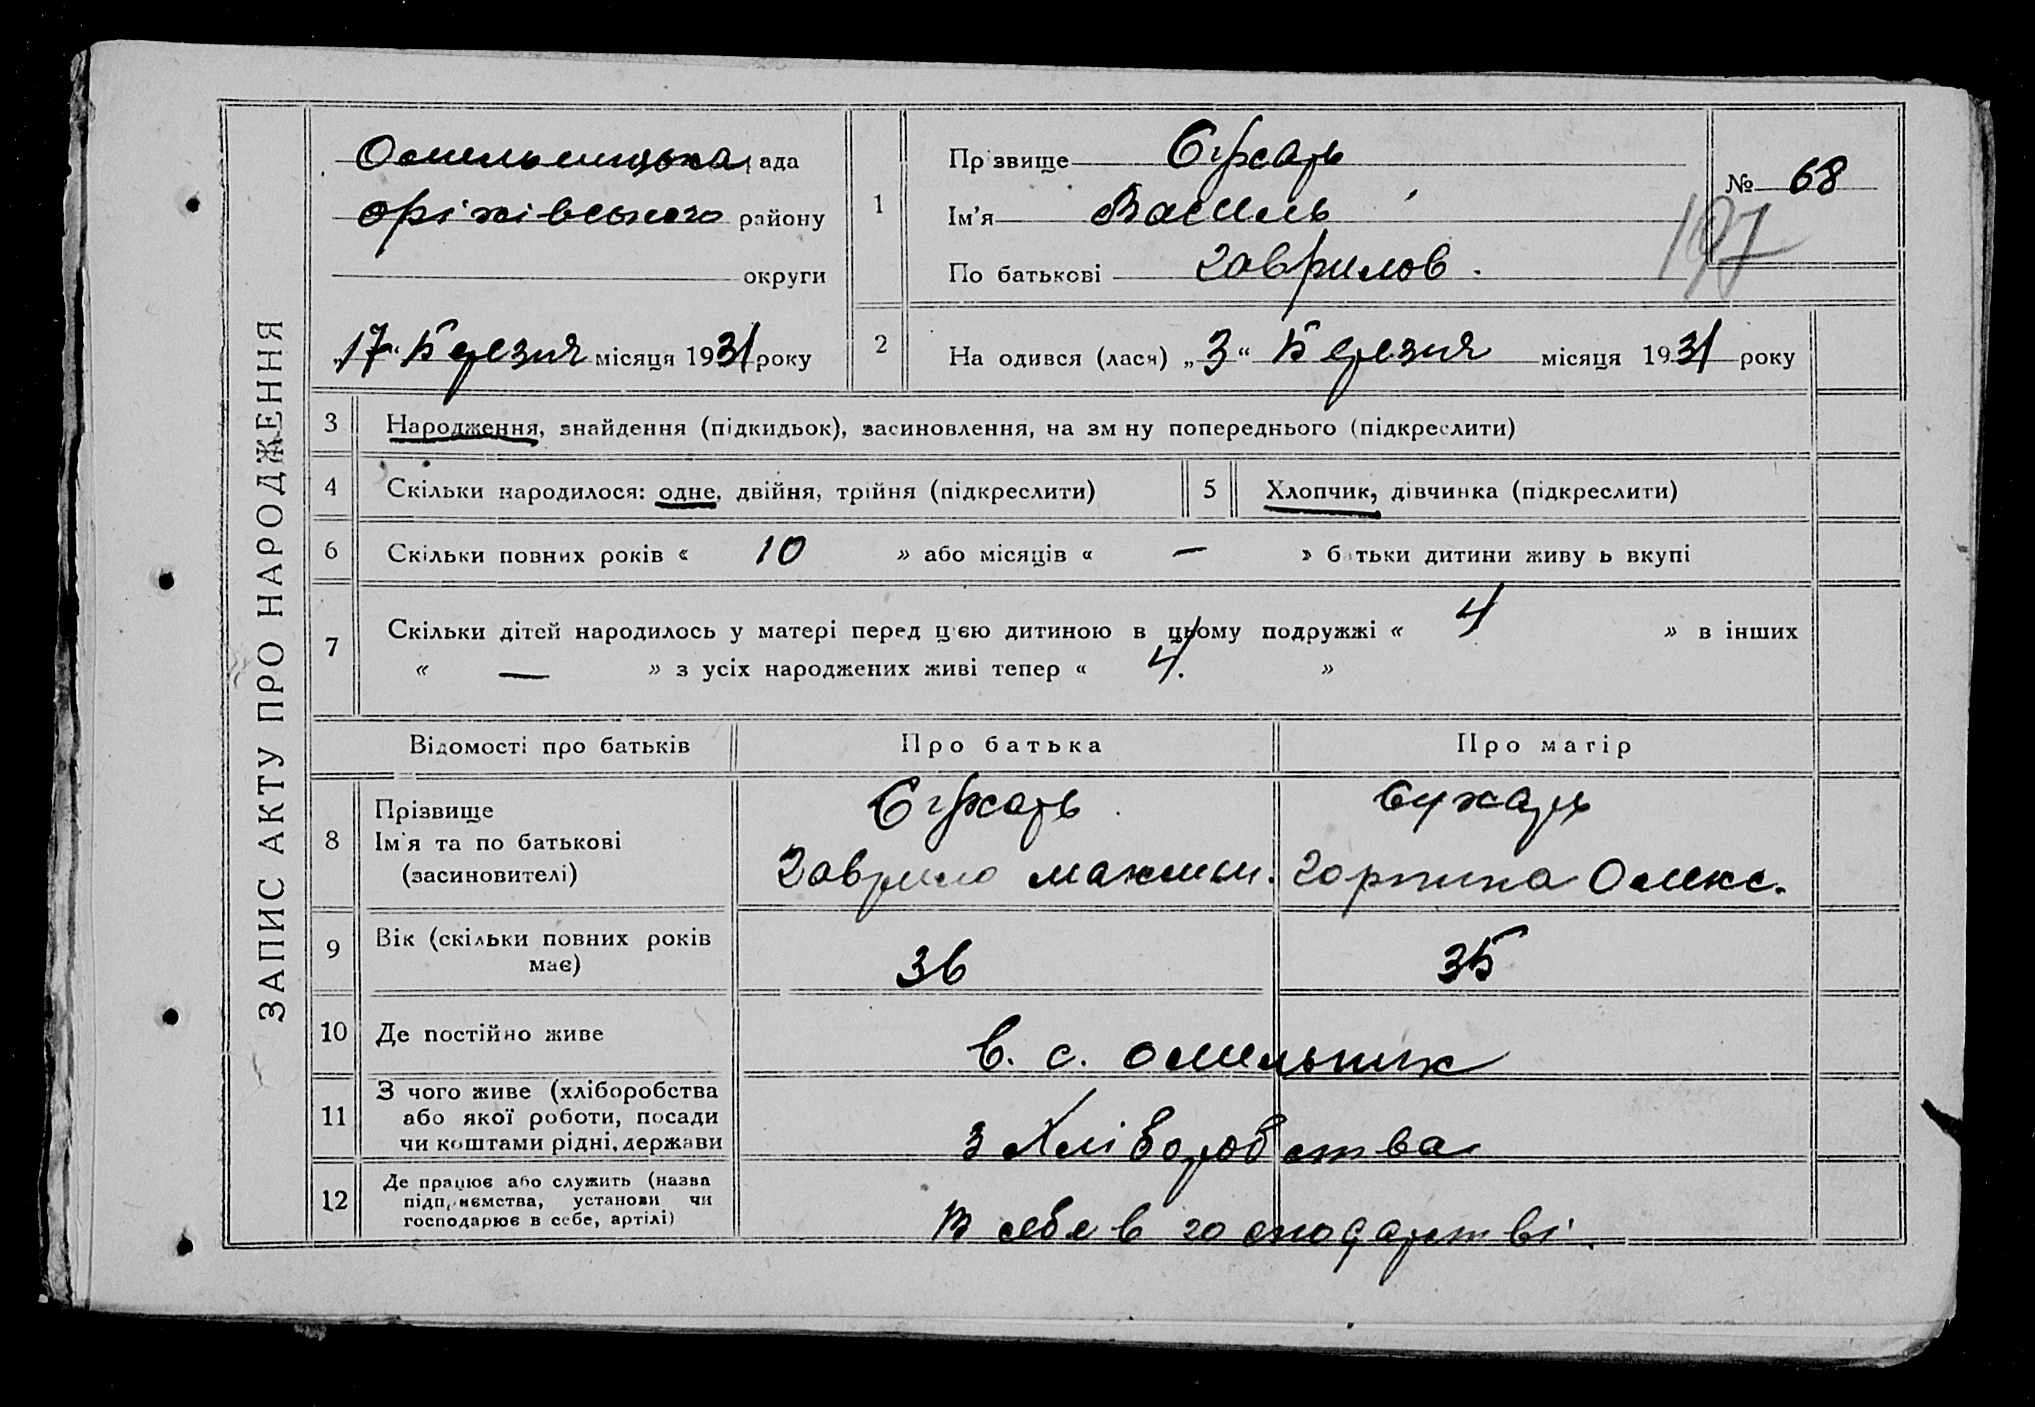 ЗАПИС АКТУ ПРО НАРОДЖЕННЯ
Омельницька рада
Оріхівського району
округи
„17“ Березня місяця 1931 року
1
Прізвище Сухарь
Ім'я Василь
По батькові Гаврилов.
№ 68
197
2
На одився (лася) „3“ Березня місяця 1931 року
3 Народження, знайдення (підкидьок), засиновлення, на зм ну попереднього (підкреслити)
4 Скільки народилося: одне, двійня, трійня (підкреслити)
5 Хлопчик, дівчинка (підкреслити)
6 Скільки повних років « 10 » або місяців « — » батьки дитини живу ь вкупі
7 Скільки дітей народилось у матері перед цією дитиною в цьому подружжі « 4 » в інших
« — » з усіх народжених живі тепер « 4. »
Відомості про батьків Про батька Про матір
8 Прізвище
Ім'я та по батькові
(засиновителі)
Сухарь
Гаврило Максим.
Сухарь
Горпина Олекс.
9 Вік (скільки повних років
має)
36 35
10 Де постійно живе
в. с. Омельник
11 З чого живе (хліборобства
або якої роботи, посади
чи коштами рідні, держави
з Хліборобства
12 Де працює або служить (назва
підп, иємства, установи чи
господарює в себе, артілі)
В себе в господарстві.